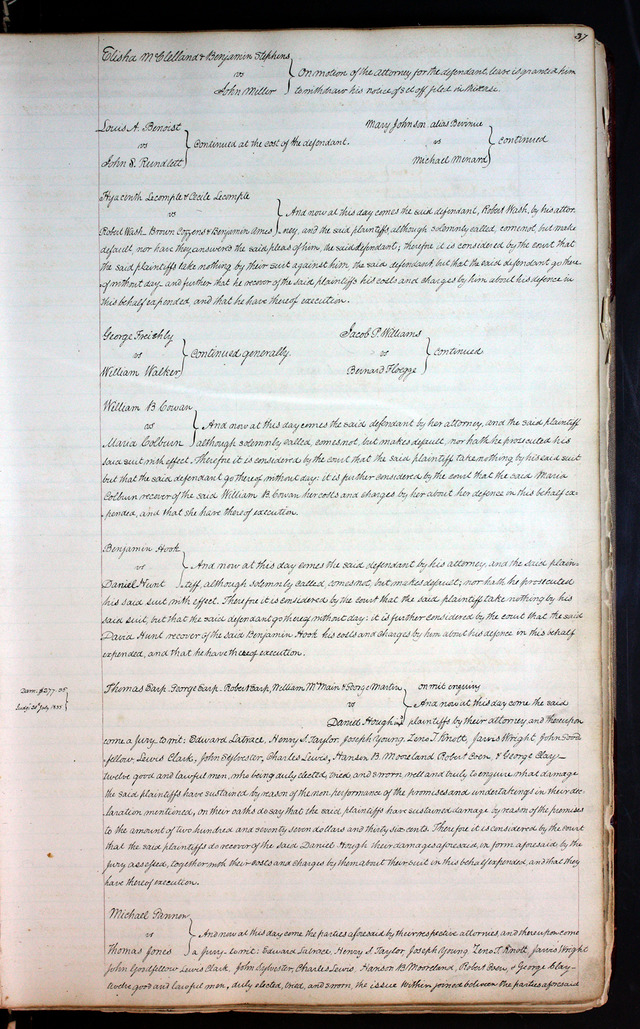 37
Elisha McClelland & Benjamin Stephens
vs
John Miller
On motion of the attorney for the defendant, leave is granted him
to withdraw his notice of set off filed in this case.
Louis A. Benoist
vs
John S. Rundlett
Continued at the cost of the defendant.
Mary Johnson, alias
vs
Michael Menard
continued
Hyacinth Lecomple & Cecile Lecomple
vs
Robert Wash, Brown Cozzens & Benjamin Ames
And now at this day comes the said defendant, Robert Wash, by his attor-
ney, and the said plaintiffs, although solemnly called, come not, but make
default, nor have they answered the said pleas of him, the said defendant; therefore it is considered by the court that
the said plaintiffs take nothing by their suit against him, the said defendant, but that the said defendant go there
of without day. and further that he recover of the said plaintiffs his costs and charges by him about his defence in
this behalf expended, and that he have thereof execution.
George Freithly
vs
William Walker
Continued generally.
Jacob P. Williams
vs
Bernard Floegge
continued
William B Cowan
vs
Maria Colburn
And now at this day comes the said defendant by her attorney, and the said plaintiff
although solemnly called, comes not, but makes default, nor hath he prosecuted his
said suit with effect. Therefore it is considered by the court that the said plaintiff take nothing by his said suit
but that the said defendant go thereof without day: it is further considered by the court that the said Maria
Colburn recover of the said William B. Cowan her costs and charges by her about her defence in this behalf ex-
pended, and that she have thereof execution.
Benjamin Hook
vs
Daniel Hunt
And now at this day comes the said defendant by his attorney, and the said plain-
tiff, although solemnly called, comes not, but makes default; nor hath he prosecuted
his said suit with effect. Therefore it is considered by the court that the said plaintiff take nothing by his
said suit, but that the said defendant go thereof without day: it is further considered by the court that the said
David Hunt recover of the said Benjamin Hook his costs and charges by him about his defence in this behalf
expended, and that he have thereof execution.
Dam. $277.36
July 1835
Thomas Earp, George Earp, Robert Earp, William McMain & George Martin
vs
Daniel Hough
on writ enquiry
And now at this day come the said
plaintiffs by their attorney, and thereupon
come a Jury to wit: Edward Latrace, Henry S. Taylor, Joseph Young, Zeno T. Knott, Jarvis Wright, John Good-
fellow, Lewis Clark, John Sylvester, Charles Lewis, Hanson B. Mooreland, Robert Coen, & George Clay-
twelve good and lawful men, who being duly elected, tried, and sworn, well and truly to enquire what damage
the said plaintiffs have sustained by reason of the non performance of the promises and undertakings in their dec-
laration mentioned, on their oaths do say that the said plaintiffs have sustained damage by reason of the premises
to the amount of two hundred and seventy seven dollars and thirty six cents. Therefore it is considered by the court
that the said plaintiffs do recover of the said Daniel Hough their damages aforesaid, in form aforesaid by the
Jury assessed, together with their costs and charges by them about their suit in this behalf expended, and that they
have thereof execution.
Michael Pannon
vs
Thomas Jones
And now at this day come the parties aforesaid by their respective attornies, and thereupon come
a Jury to wit: Edward Latrace, Henry S Taylor, Joseph Young, Zeno T. Knott, Jarvis Wright
John Goodfellow, Lewis Clark, John Sylvester, Charles Lewis, Hanson B. Mooreland, Robert Coen, & George Clay-
twelve good and lawful men, duly elected, tried, and sworn, the issue within joined between the parties aforesaid